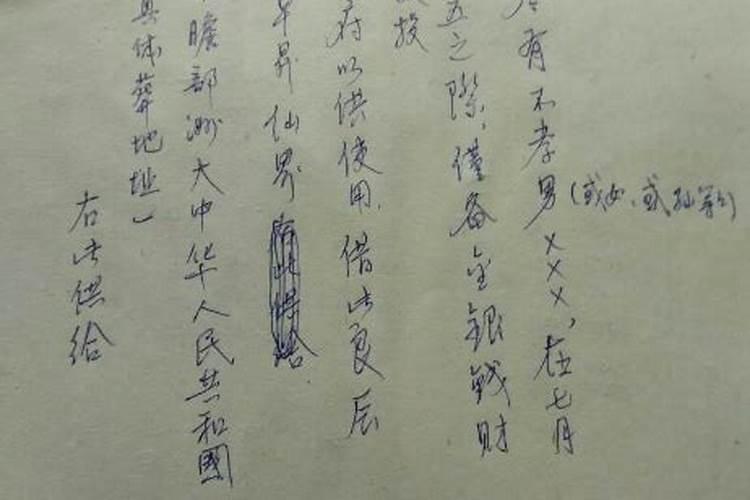 有不孝男（或女、或孙等）×××，在七月
五之际，僅备金银钱财
投
府以供使用，借此良辰
早昇仙界
瞻部洲大中华人民共和國
具体葬地址）
右此供给